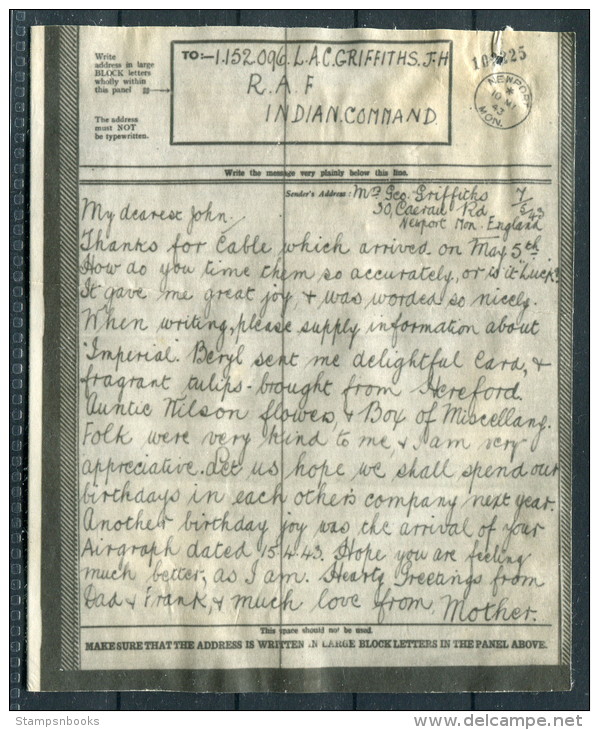 Write
address in large
BLOCK letters
wholly within
this panel
The address
must NOT
be typewritten.
TO:-1.152.096. L.A.C. GRIFFITHS. J.H
R.A.F
INDIAN. COMMAND
NEWPORT
10 MY
43
MON.
Write the message very plainly below this line.
Sender's Address: Mrs Geo. Griffiths 7/5/43
30, Caerau Rd
Newport Mon. England
My dearest John.
Thanks for Cable which arrived on May 5th.
How do you time them so accurately, or is it "Luck"?
It gave me great joy, & was worded so nicely.
When writing, please supply information about
"Imperial". Beryl sent me delightful Card, &
fragrant tulips - brought from Hereford.
Auntie Wilson flowers, & Box of Miscellany.
Folk were very kind to me, & I am very
appreciative. Let us hope we shall spend our
birthdays in each other's company next year.
Another birthday joy was the arrival of your
Airgraph dated 15.4.43. Hope you are feeling
much better, as I am. Hearty Greetings from
Dad & Frank, & much love from Mother.
This space should not be used.
MAKE SURE THAT THE ADDRESS IS WRITTEN IN LARGE BLOCK LETTERS IN THE PANEL ABOVE.
Stampsnbooks
www.delcampe.net